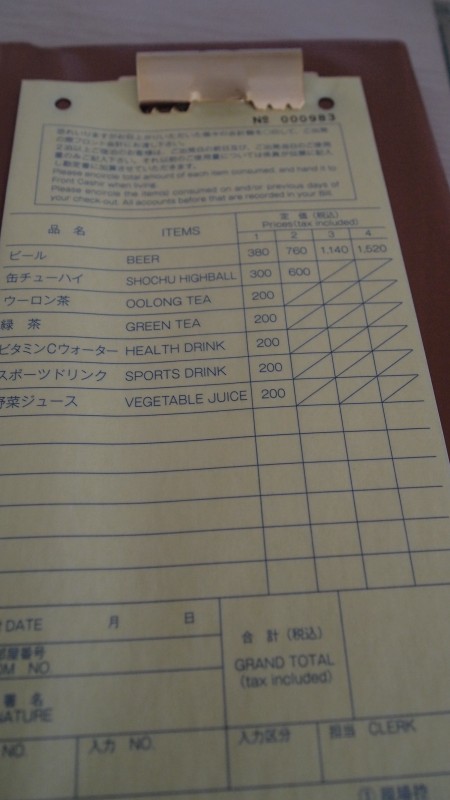 No 000983
Please encircle total amount of each item consumed, and hand it to
Front Cashir when living.
Please encircle the item(s) consumed on and/or previous days of
your check-out. All accounts before that are recorded in your Bill.
品 名 ITEMS 定 価 (税込)
Prices(tax included)
1 2 3 4
ビール BEER 380 760 1,140 1,520
缶チューハイ SHOCHU HIGHBALL 300 600
ウーロン茶 OOLONG TEA 200
緑 茶 GREEN TEA 200
ビタミンCウォーター HEALTH DRINK 200
スポーツドリンク SPORTS DRINK 200
野菜ジュース VEGETABLE JUICE 200
DATE 月 日
合 計 (税込)
GRAND TOTAL
(tax included)
部屋番号
OM NO
署 名
NATURE
NO.
入力 NO.
入力区分
担当 CLERK